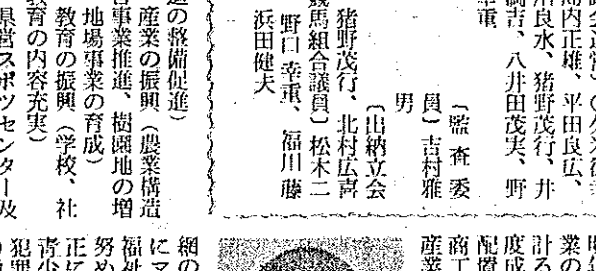 内正雄、平田良広、
良水、猪野茂行、井
吉、八井田茂実、野
幸重
〔監査委
員〕吉村雅
男
〔出納立会
猪野茂行、北村広喜
競馬組合議員〕松木二
野口幸重、福川藤
浜田健夫
道の整備促進）
産業の振興（農業構造
事業推進、樹園地の増
地場事業の育成）
教育の振興（学校、社
教育の内容充実）
県営スポツセンター及
業の
計る
度成
配置
商工
産業
網の
にマ
福祉
努め
正に
青少
犯罪